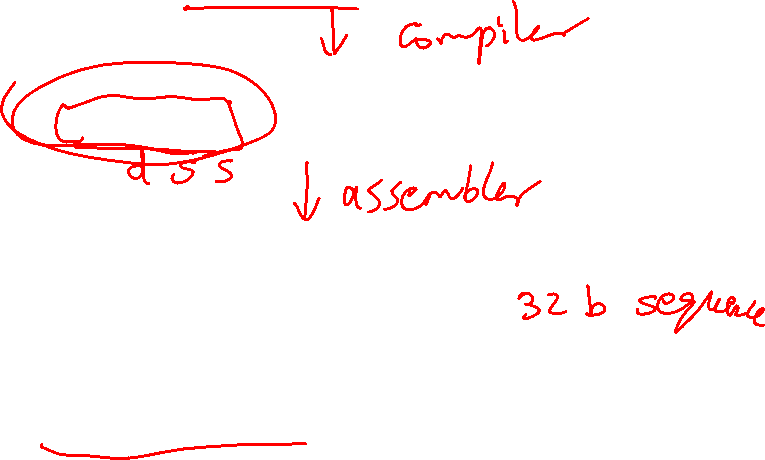 compiler
d s s
assembler
32 b sequence